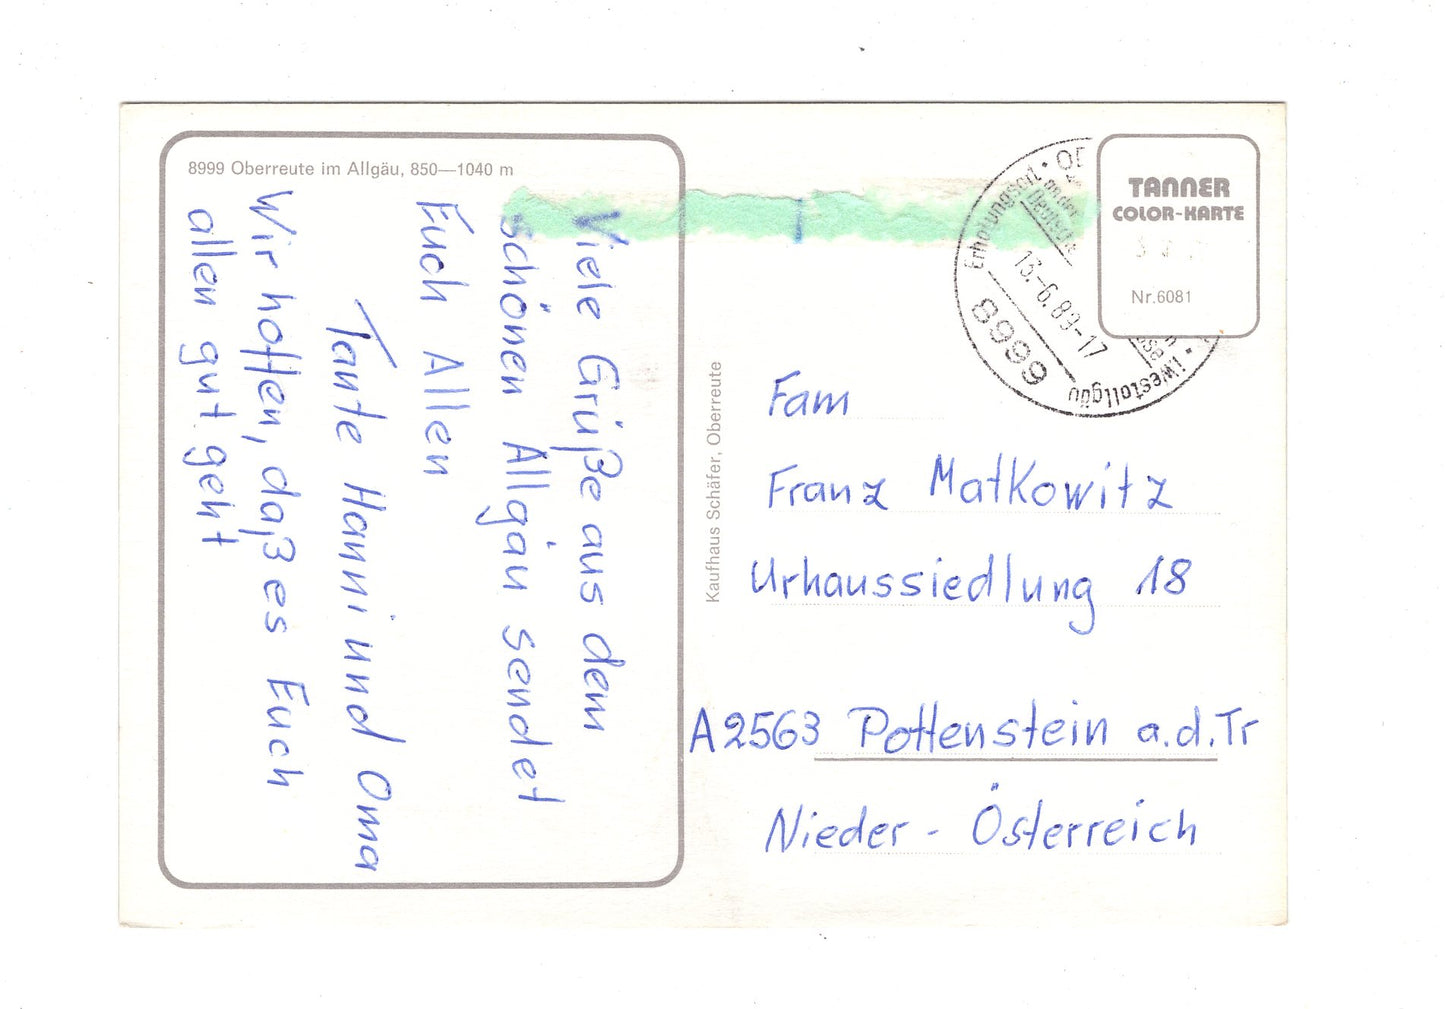 8999 Oberreute im Allgäu, 850—1040 m
Viele Grüße aus dem
schönen Allgäu sendet
Euch Allen
Tante Hanni und Oma
Wir hoffen, daß es Euch
allen gut geht
Kaufhaus Schäfer, Oberreute
Erholungsort
an der
Deutsche
13.-6.89-17
8999
i Westallgäu
TANNER
COLOR-KARTE
Nr.6081
Fam
Franz Matkowitz
Urhaussiedlung 18
A2563 Pottenstein a.d.Tr
Nieder - Österreich